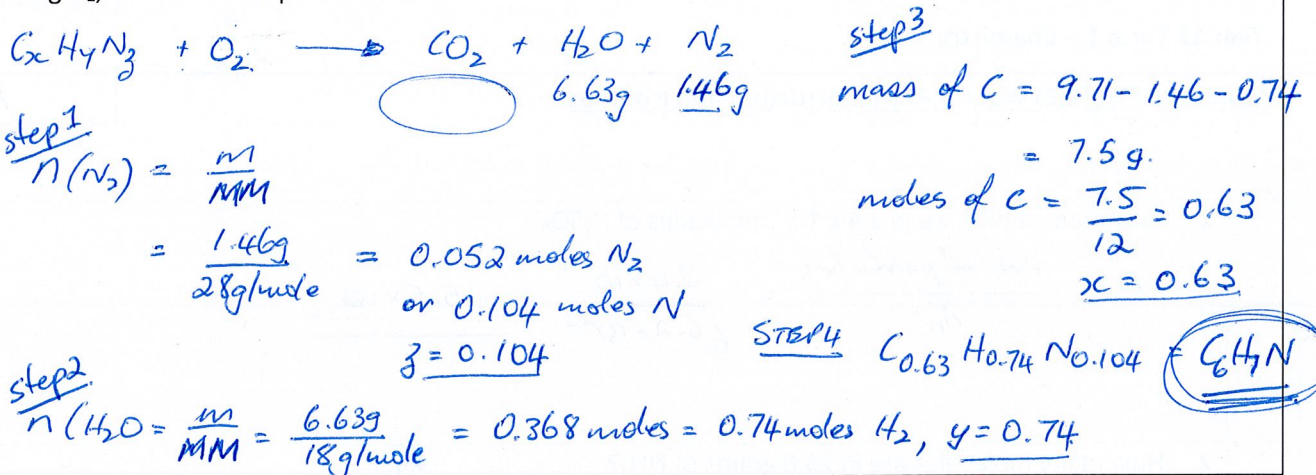 CxHyNz + O2 → CO2 + H2O + N2
6.63g 1.46g
step1
n(N2) = m/MM
= 1.46g/28g/mole = 0.052 moles N2
or 0.104 moles N
z = 0.104
step2
n(H2O = m/MM = 6.63g/18g/mole = 0.368 moles = 0.74 moles H2, y = 0.74
step3
mass of C = 9.71 - 1.46 - 0.74
= 7.5 g.
moles of C = 7.5/12 = 0.63
x = 0.63
STEP4 C0.63 H0.74 N0.104 = C6H7N